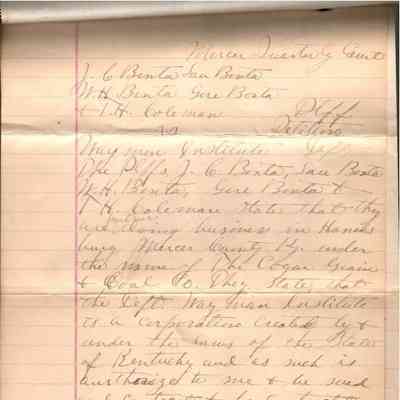 Mercer Quarterly Court
J. C Bonta Sam Bonta
W. H. Bonta Gere Bonta
& T. H. Coleman Plff
vs Petition
Wayman Institute Deft
The Plffs J. C Bonta, Sam Bonta
W. H. Bonta, Gere Bonta &
T H. Coleman state that they
are doing business in Harrods
burg Mercer County Ky. under
the name of The Cogar Grain
& Coal Co. They state that
the Deft Wayman Institute
is a Corporation created by &
under the laws of the State
of Kentucky and as such is
authorize to sue & be sued